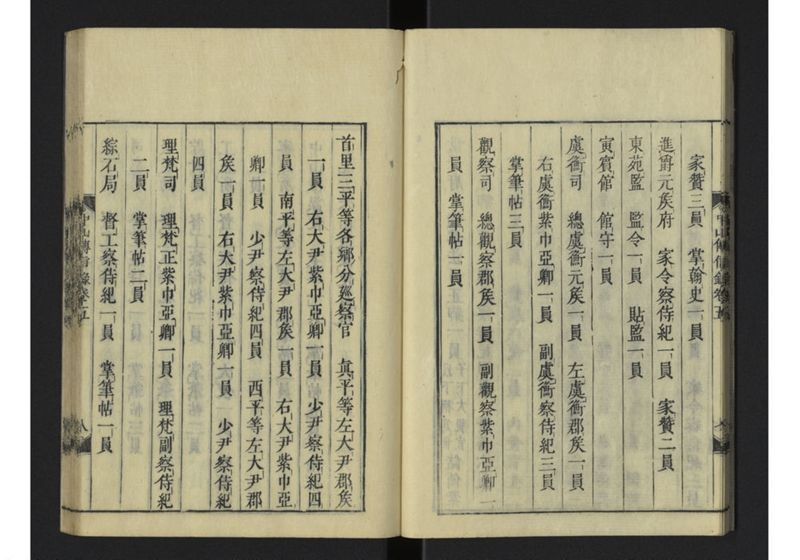 家贊三員　掌翰史一員
進爵元矦府　家令察侍紀一員　家贊二員
東苑監　監令一員　貼監一員
寅賓館　館守一員
虞衡司　總虞衡元矦一員　左虞衡郡矦一員
右虞衡紫巾亞卿一員　副虞衡察侍紀三員
掌筆帖三員
觀察司　總觀察郡矦一員　副觀察紫巾亞卿一
員　掌筆帖一員
首里三平等各鄉分巡察官　真平等左大尹郡矦
一員　右大尹紫巾亞卿一員　少尹察侍紀四
員　南平等左大尹郡矦一員　右大尹紫巾亞
卿一員　少尹察侍紀四員　西平等左大尹郡
矦一員　右大尹紫巾亞卿一員　少尹察侍紀
四員
理梵司　理梵正紫巾亞卿一員　理梵副察侍紀
二員　掌筆帖二員
綜石局　督工察侍紀一員　掌筆帖一員
中山傳信錄卷五
八